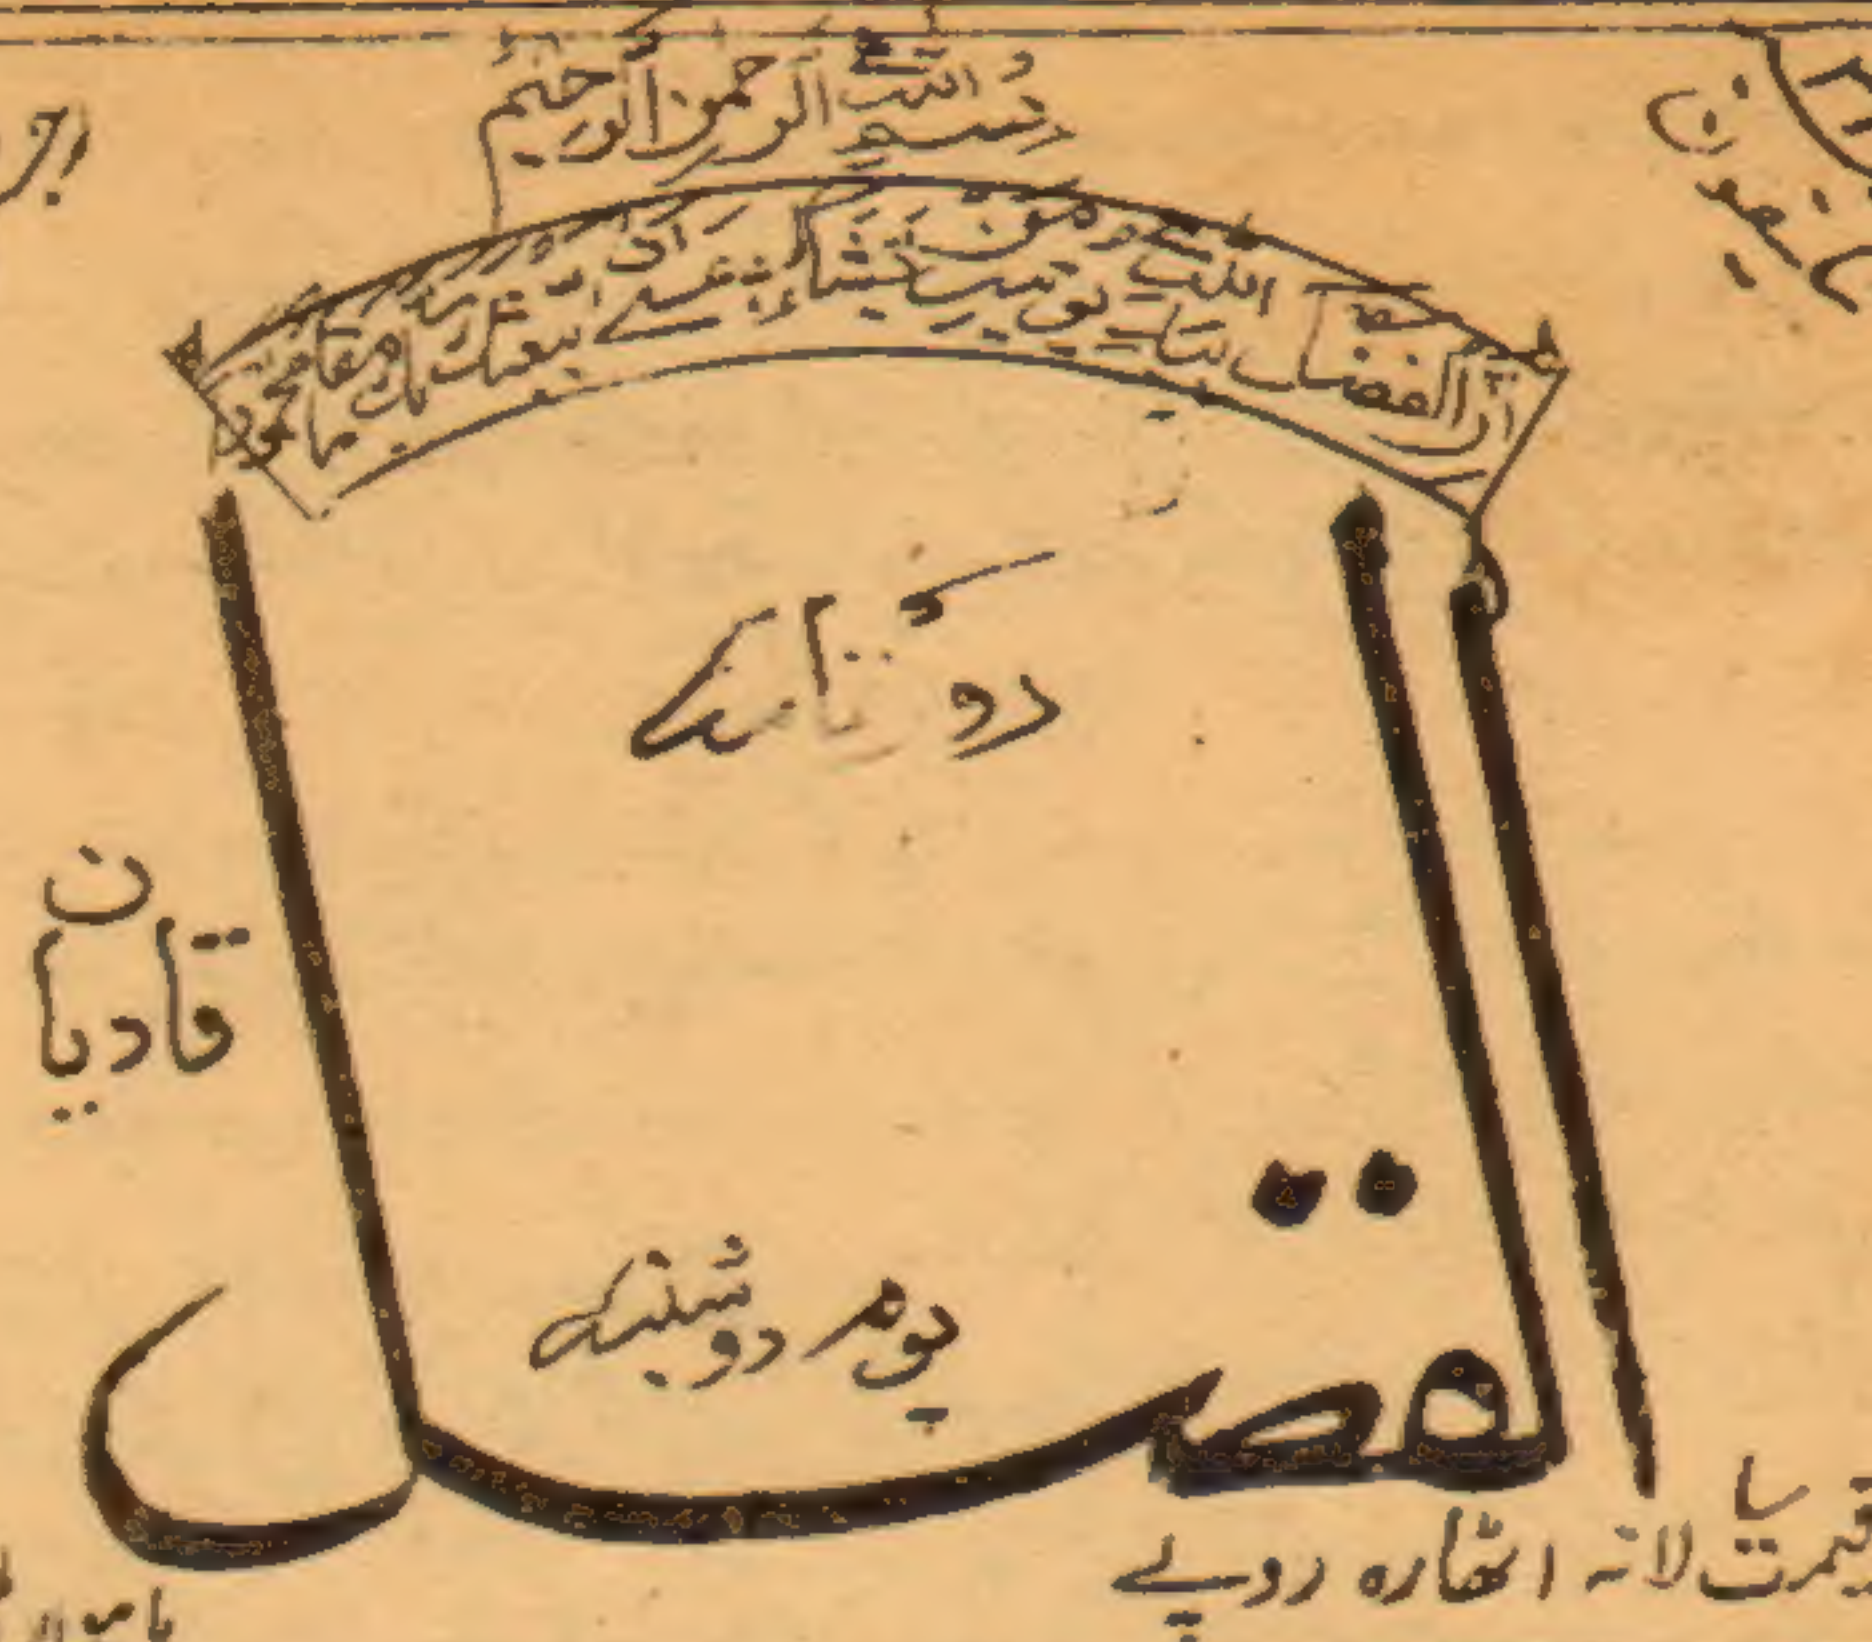 بسم اللہ الرحمن الرحیم
ان الفضل بید اللہ یوتیہ من یشاء عسی ان یبعثک ربک مقاما محمودا
روزنامہ
قادیان
الفضل
یوم دوشنبہ
قیمت سالانہ اٹھارہ روپے